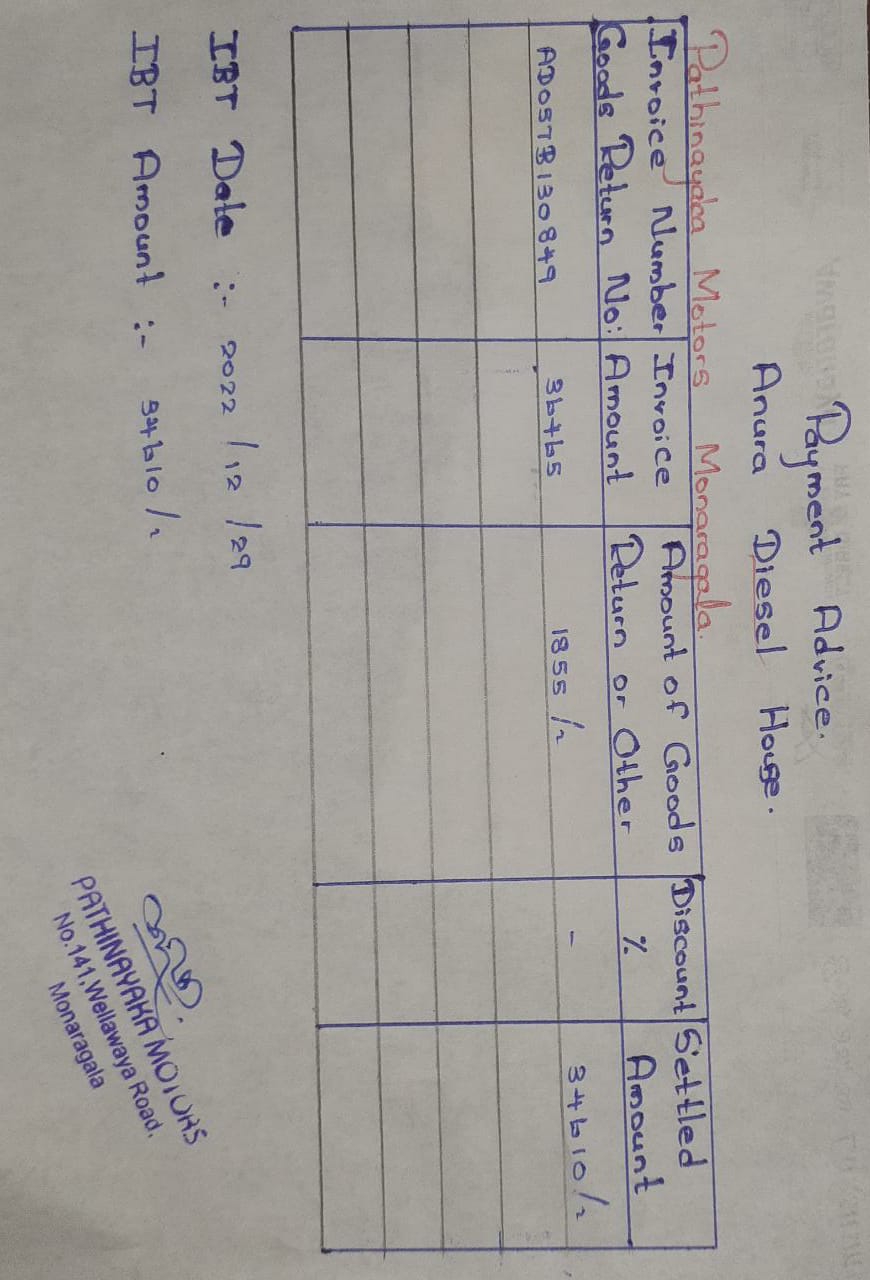 Payment Advice.
Anura Diesel House.
Pathinayaka Motors Monaragala.
Invoice Number Invoice Amount of Goods Discount Settled
Goods Return No: Amount Return or Other % Amount
AD057B130849 36465 1855/- - 34610/-
IBT Date :- 2022/12/29
IBT Amount :- 34610/-
PATHINAYAKA MOTORS
No.141, Wellawaya Road,
Monaragala